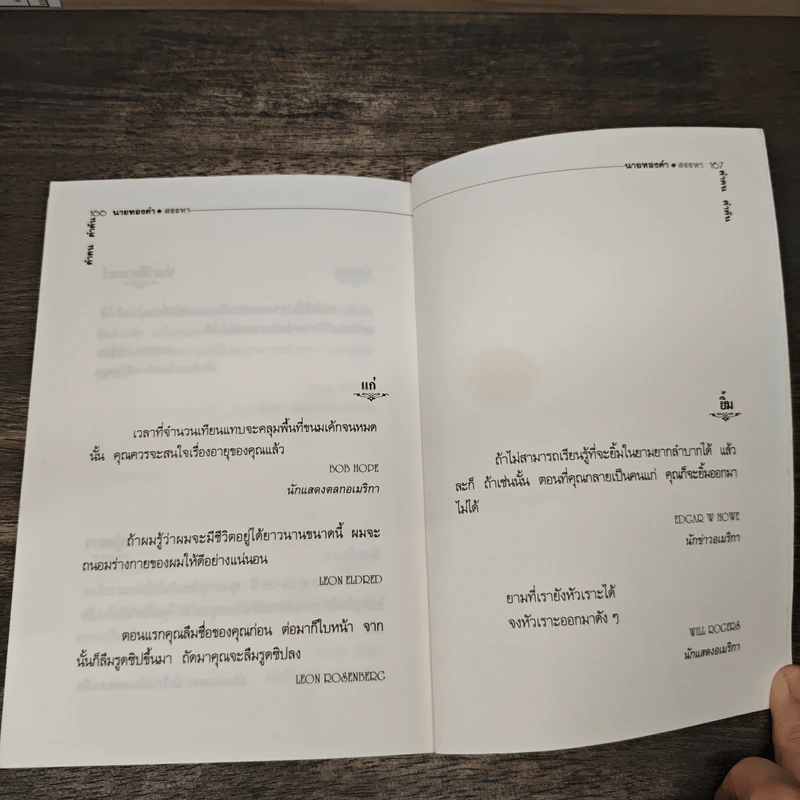 166 นายทองคำ • สรรหา
คำคน คำค้น
แก่
เวลาที่จำนวนเทียนแทบจะคลุมพื้นที่ขนมเค้กจนหมด
นั้น คุณควรจะสนใจเรื่องอายุของคุณแล้ว
BOB HOPE
นักแสดงตลกอเมริกา
ถ้าผมรู้ว่าผมจะมีชีวิตอยู่ได้ยาวนานขนาดนี้ ผมจะ
ถนอมร่างกายของผมให้ดีอย่างแน่นอน
LEON ELDRED
ตอนแรกคุณลืมชื่อของคุณก่อน ต่อมาก็ใบหน้า จาก
นั้นก็ลืมรูดซิปขึ้นมา ถัดมาคุณจะลืมรูดซิปลง
LEON ROSENBERG
นายทองคำ • สรรหา 167
คำคน คำค้น
ยิ้ม
ถ้าไม่สามารถเรียนรู้ที่จะยิ้มในยามยากลำบากได้ แล้ว
ละก็ ถ้าเช่นนั้น ตอนที่คุณกลายเป็นคนแก่ คุณก็จะยิ้มออกมา
ไม่ได้
EDGAR W HOWE
นักข่าวอเมริกา
ยามที่เรายังหัวเราะได้
จงหัวเราะออกมาดัง ๆ
WILL ROGERS
นักแสดงอเมริกา